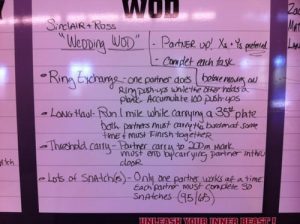 WOD
Zac
Mat
Lau
Sinclair + Ross
"Wedding WOD"
- Partner up! Xs + Ys preferred
- Complet each task
before moving on
• Ring Exchange - one partner does
Ring push-ups while the other holds a
plank. Accumulate 100 push-ups
• Long Haul - Run 1 mile while carrying a 35# plate
both partners must carry the burden at some
time + must Finish together
• Threshold carry - Partner carry to 200m mark.
must end by carrying partner thru
door
• Lots of Snatch(es) - Only one partner works at a time
Each partner must complete 30
snatches (95/65)
UNLEASH YOUR INNER BEAST!